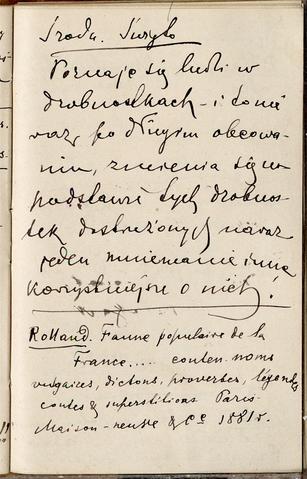 Środa. Suzyło
Poznaje się ludzi w
drobnostkach - i to nie
raz, po długim obcowa-
niu, zmienia się na
podstawie tych drobno-
stek dostrzeżonych naraz
jeden mniemanie inne
korzystniejsze o nich!
Rolland. Faune populaire de la
France.... conten. noms
vulgaires, dictons, proverbes, légendes
contes & superstitions Paris
Maison-neuve & Cº 1881 r.